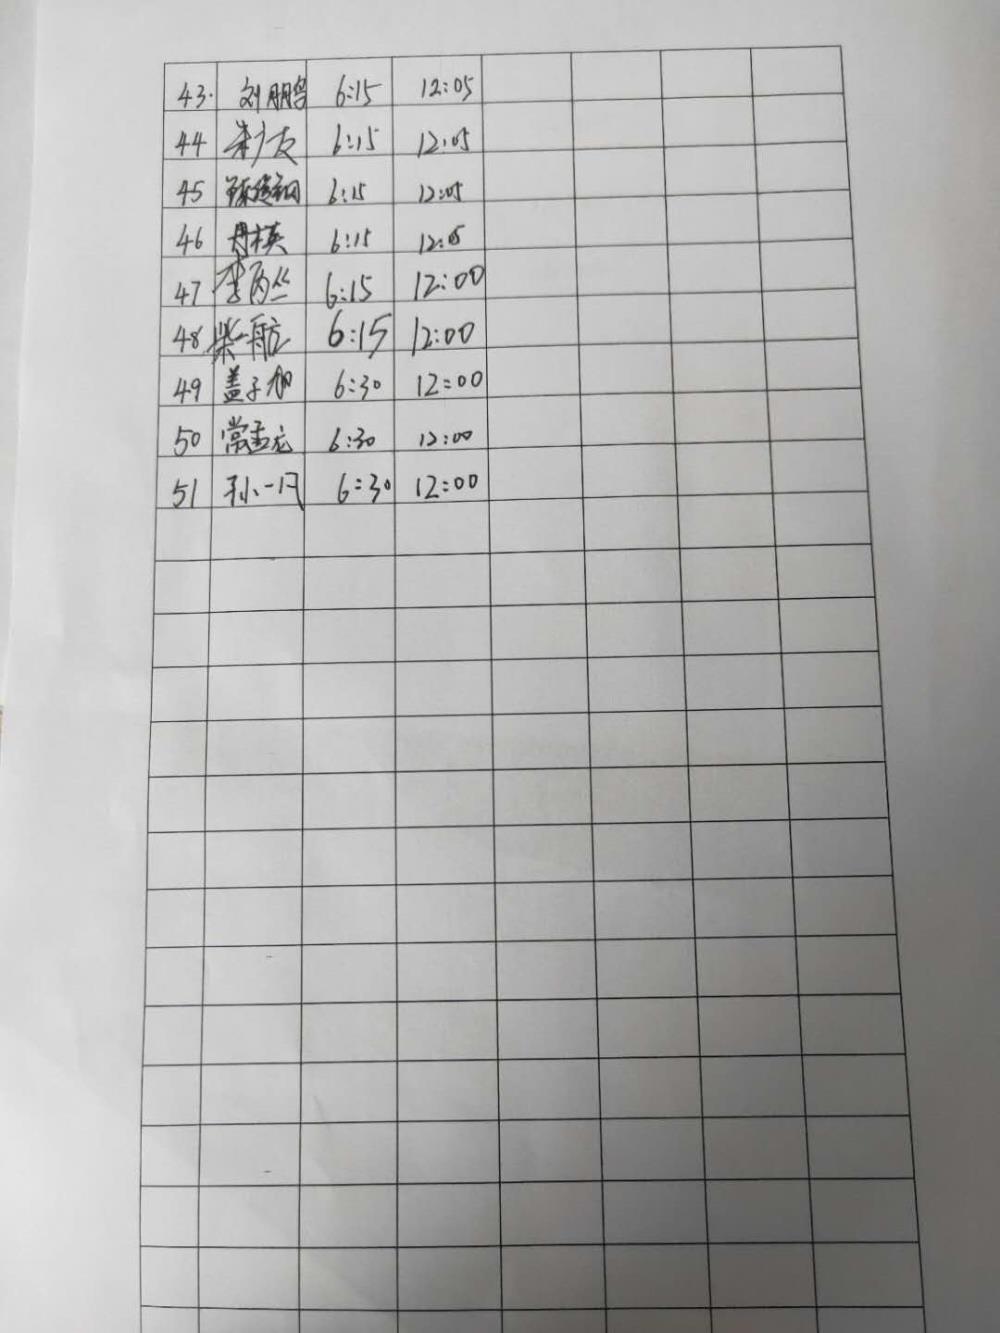 43. 刘鹏鹤 6:15 12:05
44 朱广友 6:15 12:05
45 6:15 12:05
46 6:15 12:05
47 李丙丝 6:15 12:00
48 柴航 6:15 12:00
49 盖子旭 6:30 12:00
50 常孟龙 6:30 12:00
51 孙一凡 6:30 12:00